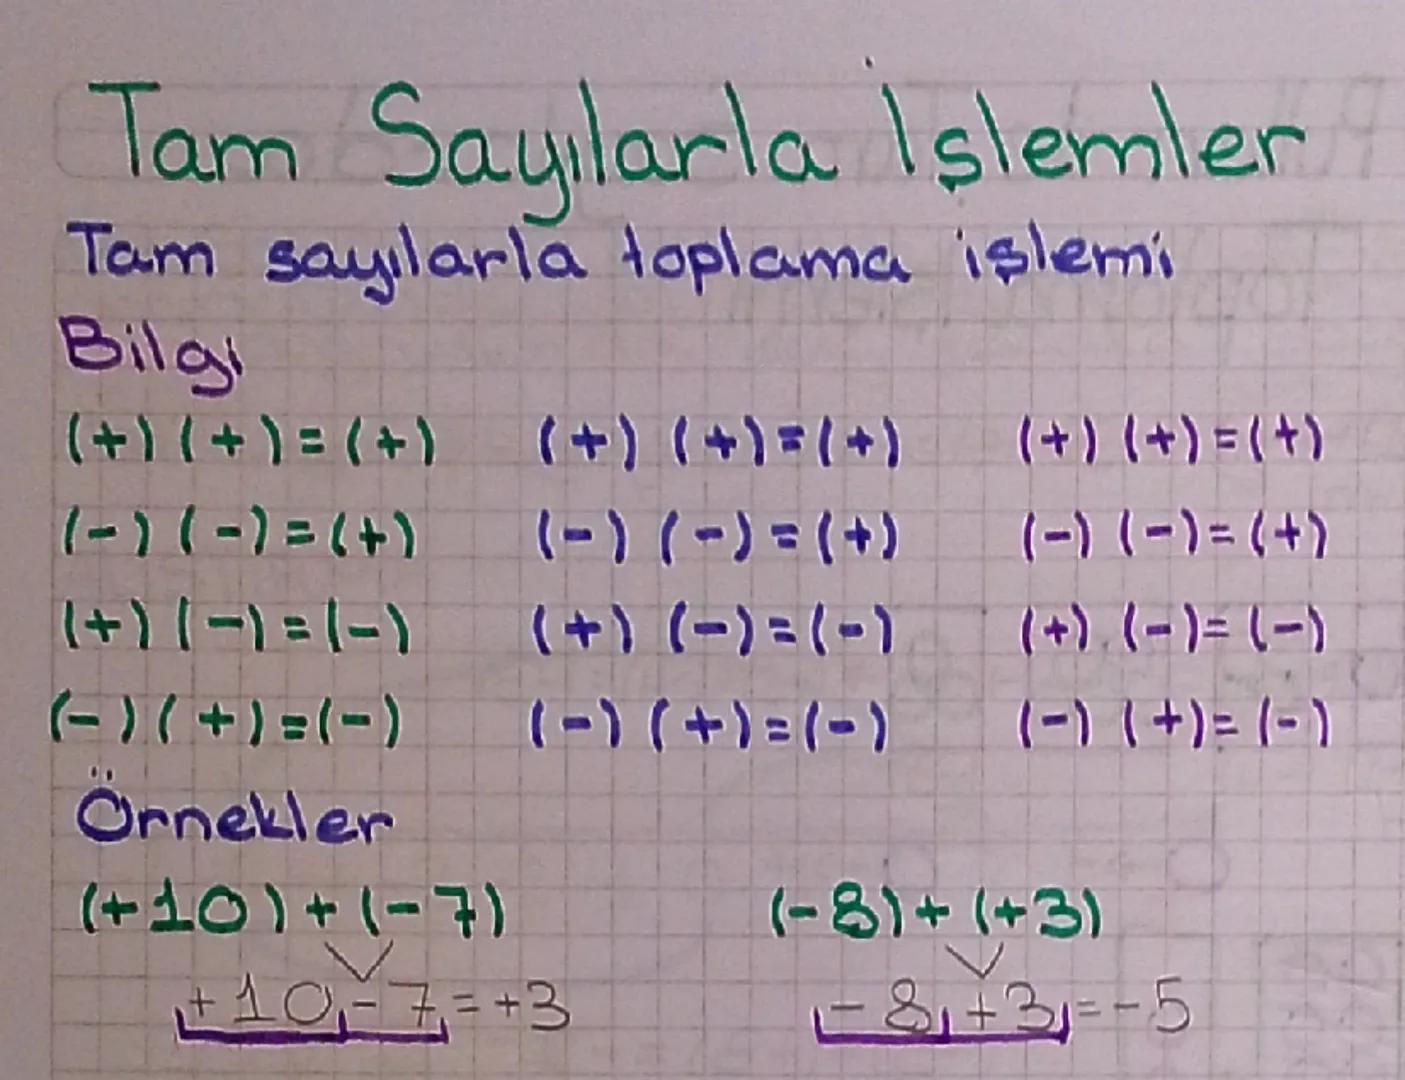 Tam Sayılarla İşlemler
Tam sayılarla toplama işlemi
Bilgi
(+) (+) = (+) (+) (+) = (+) (+) (+) = (+)
(-) (-) = (+) (-) (-) = (+) (-) (-) = (+)
(+) (-) = (-) (+) (-) = (-) (+) (-) = (-)
(-) (+) = (-) (-) (+) = (-) (-) (+) = (-)
Örnekler
(+10) + (-7) (-8) + (+3)
+10 - 7 = +3 - 8 + 3 = - 5